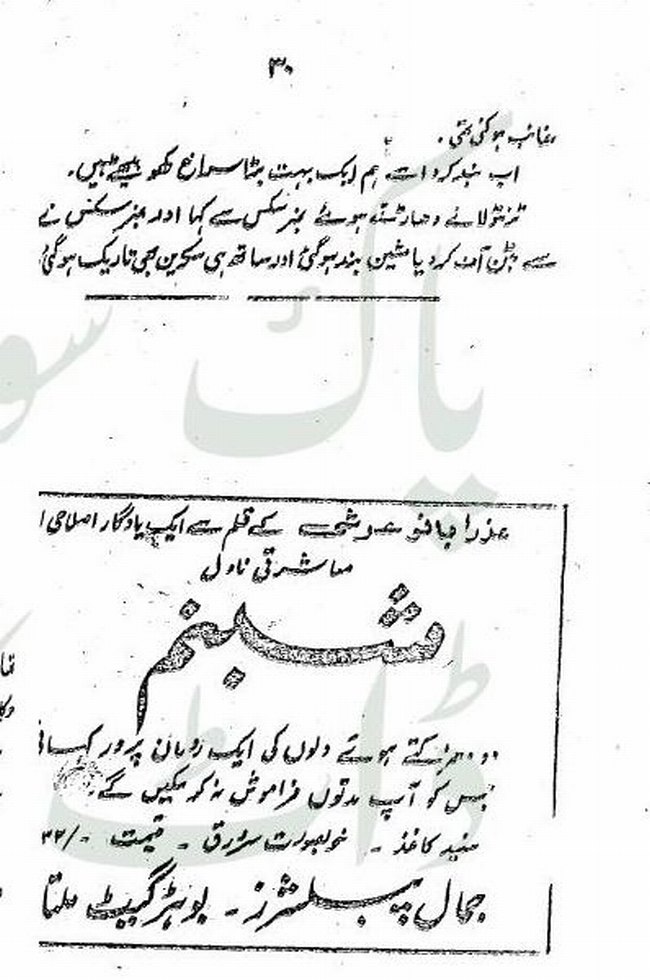 ۳۰
غائب ہو گئی تھی۔
اب بند کردو اسے ہم ایک بہت بڑا سراغ کھو بیٹھے ہیں۔
نے دھاڑتے ہوئے سے کہا اور نے
سے بٹن آف کر دیا مشین بند ہو گئی اور ساتھ ہی سکرین بھی تاریک ہو گئی
عذرا بانو عرشی کے قلم سے ایک یادگار اصلاحی ا
معاشرتی ناول
شبنم
دو دھڑکتے ہوئے دلوں کی ایک رومان پرور کہانی
جس کو آپ مدتوں فراموش نہ کر سکیں گے۔
سفید کاغذ - خوبصورت سرورق - قیمت
جمال پبلشرز - بوہڑ گیٹ ملتا
پاک سو
ڈاٹ